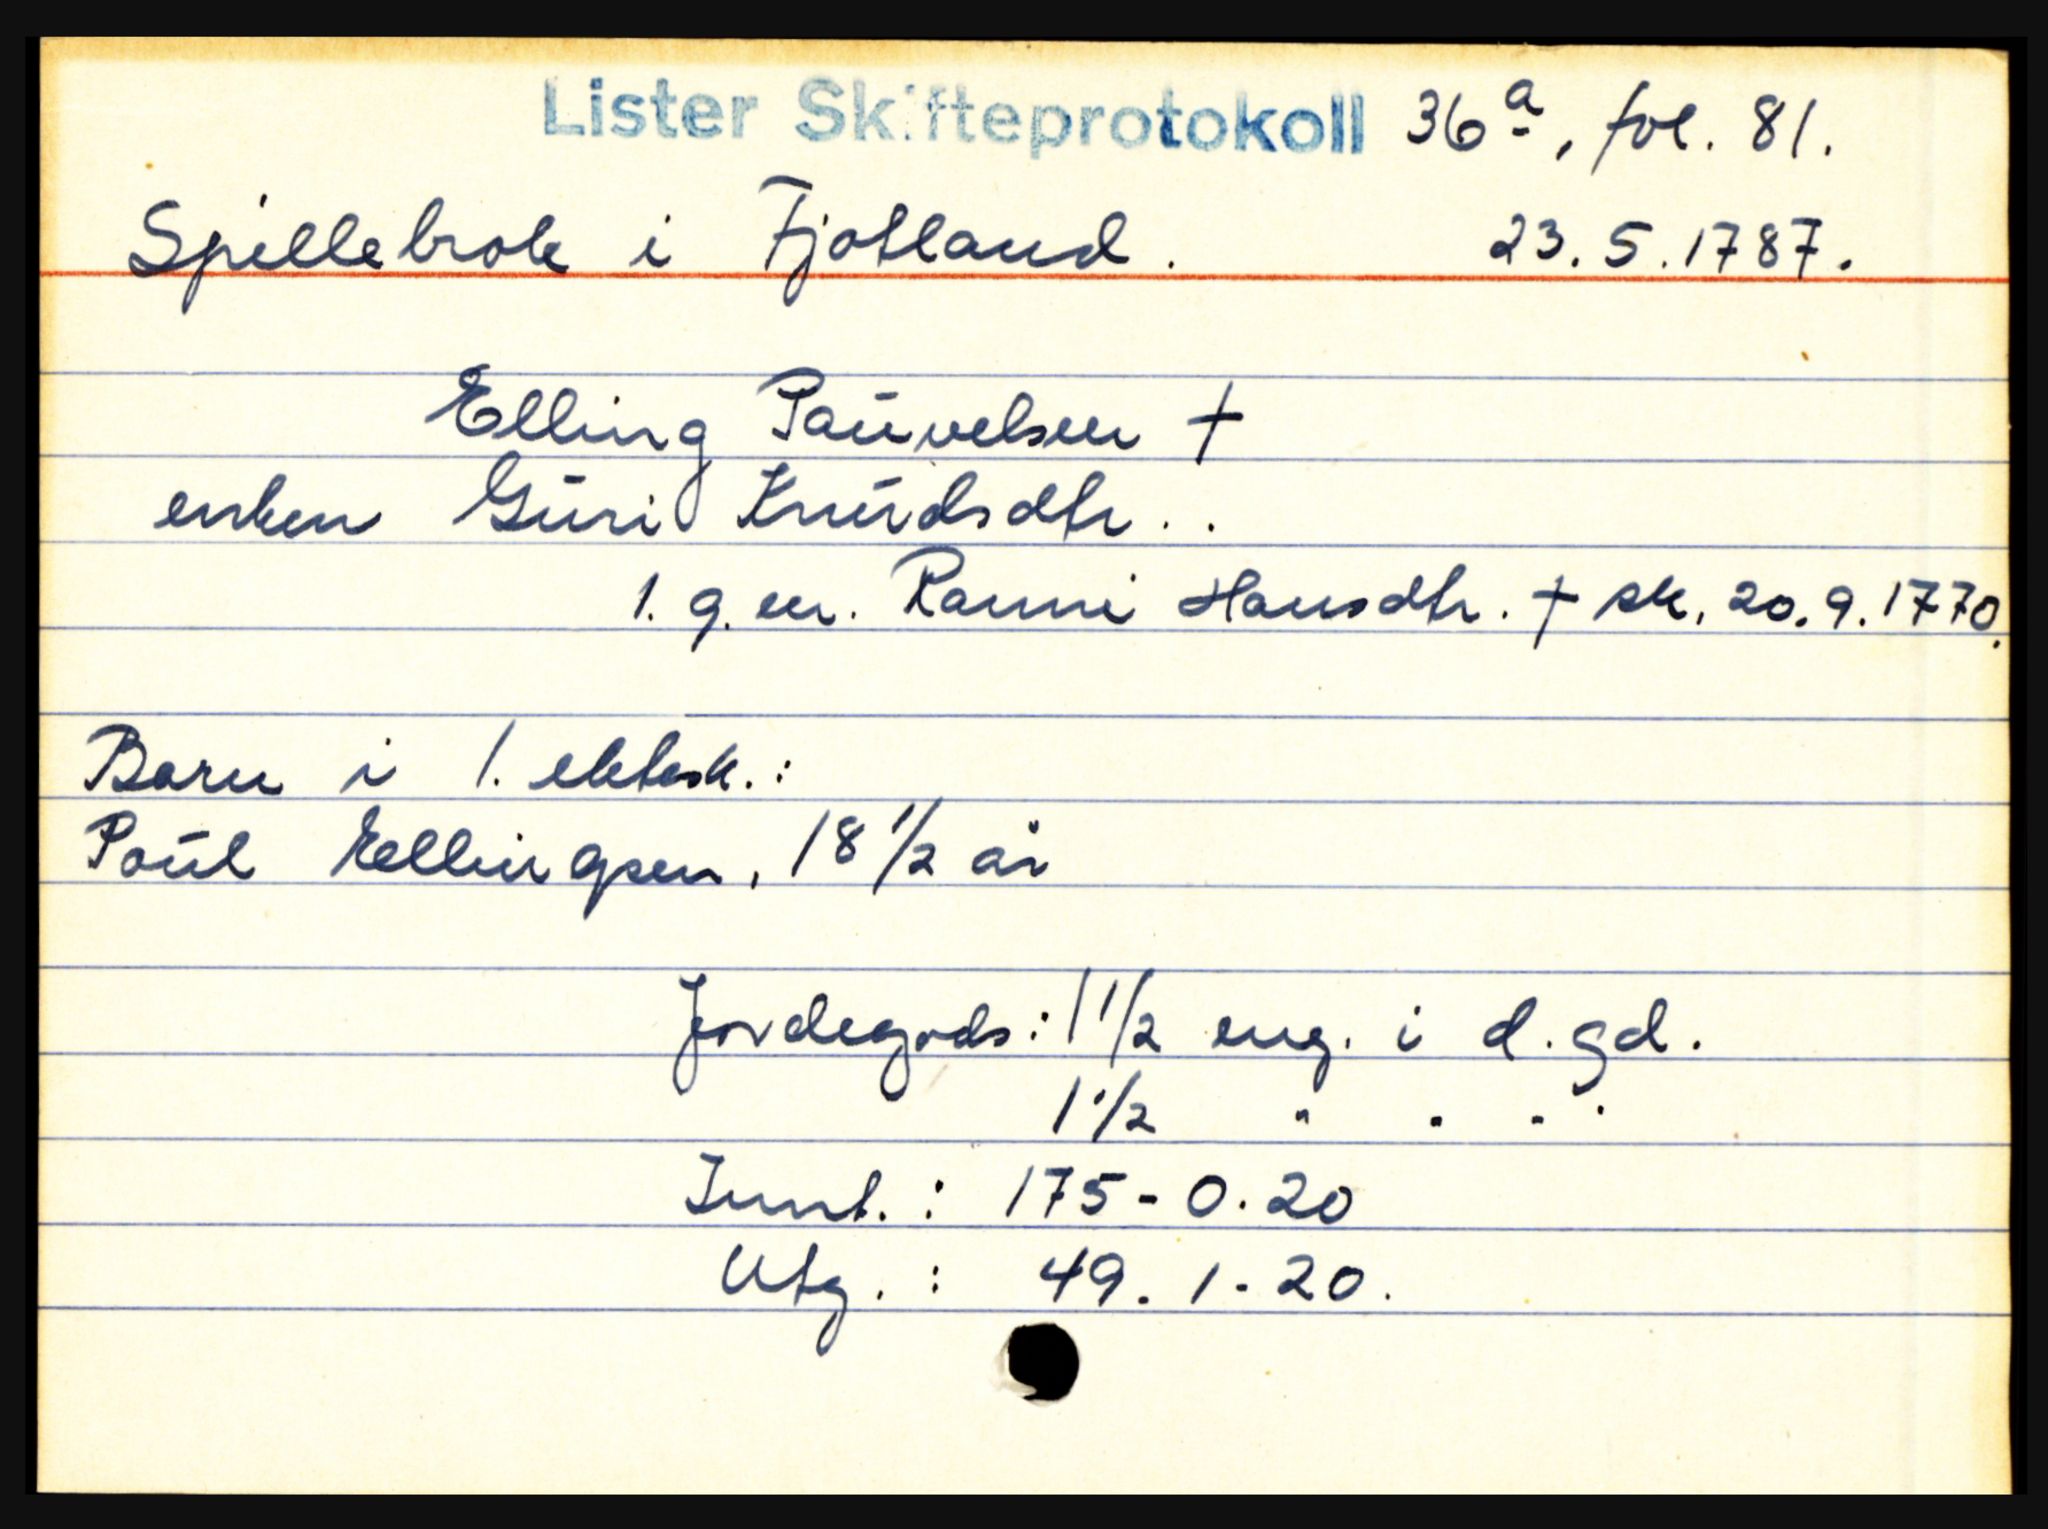 Lister Skifteprotokoll 36a, fol. 81.
Spillebrok i Fjotland. 23.5.1787.
Elling Pauvelsen †
enken Guri Knudsdtr..
1. g. m. Ranni Hansdtr. † sk. 20.9.1770.
Barn i 1. ektesk.:
Poul Ellingsen, 18 1/2 år
Jordegods: 1 1/2 eng. i d. gd.
1 1/2 " " " "
Innt. : 175 - 0.20
Utg. : 49. 1 - 20.